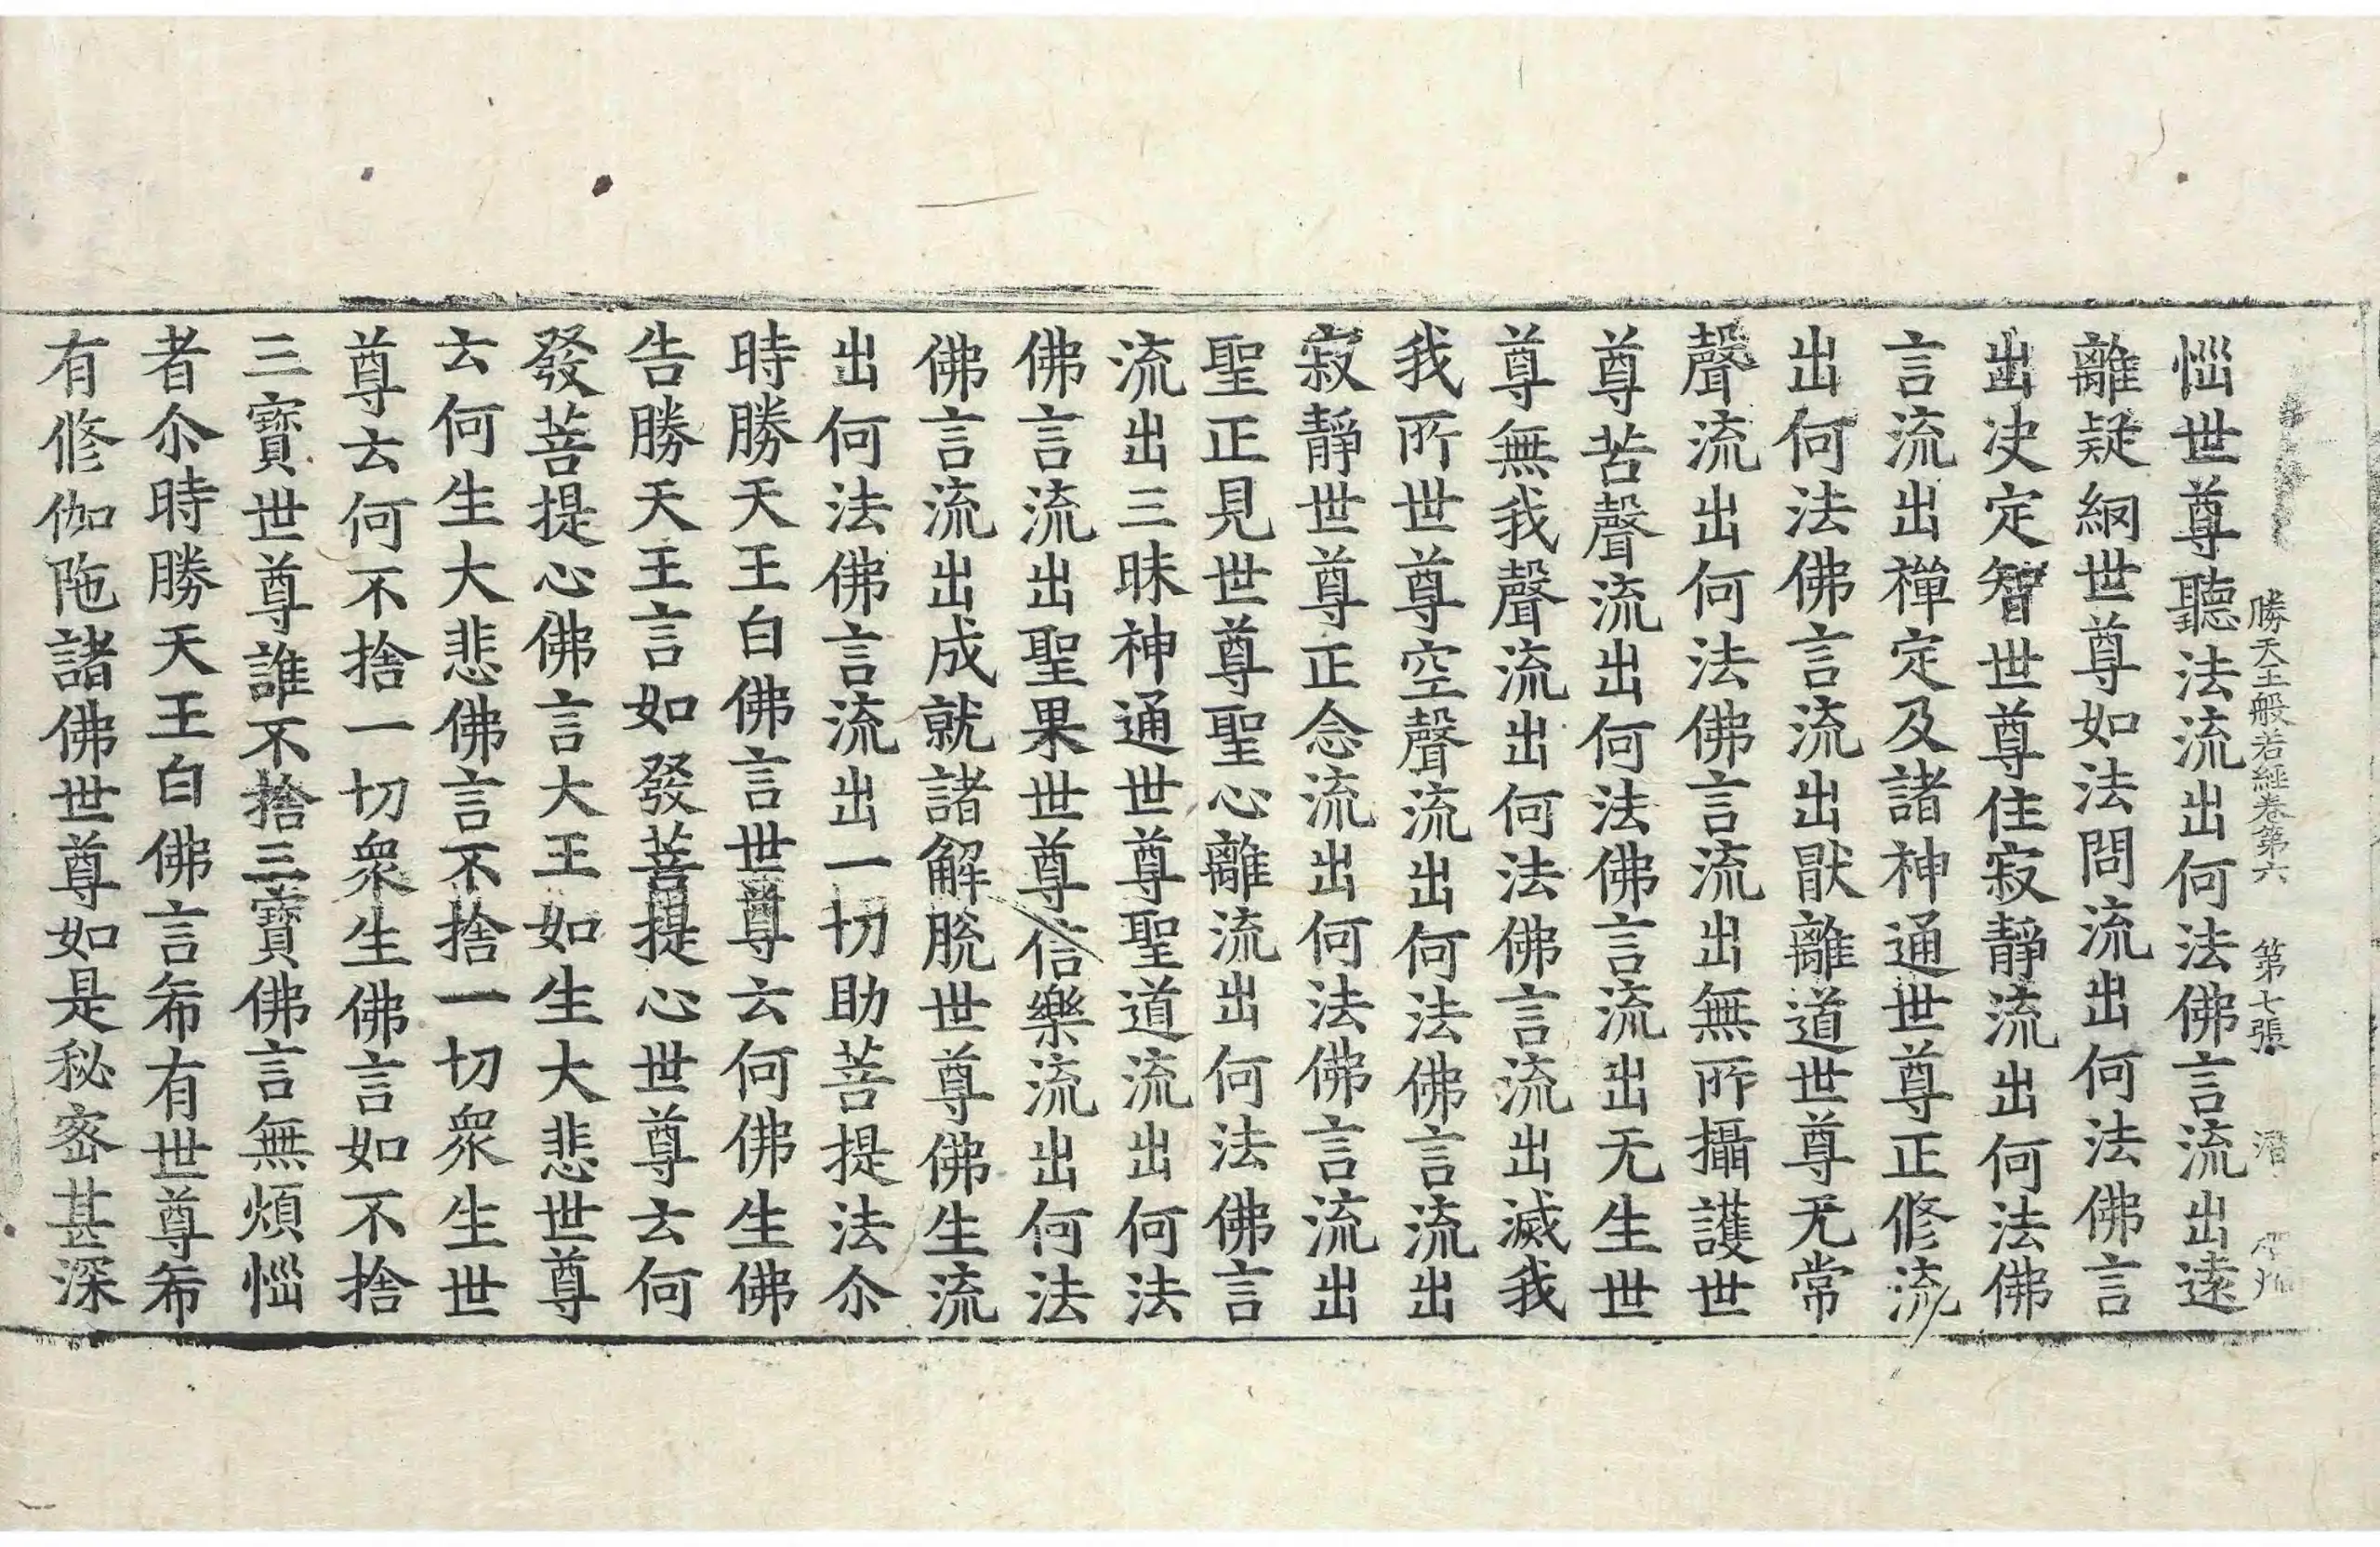 勝天王般若經卷第六 第七張 潛
惱世尊聽法流出何法佛言流出遠
離疑網世尊如法問流出何法佛言
出决定智世尊住寂靜流出何法佛
言流出禪定及諸神通世尊正修流
出何法佛言流出猒離道世尊无常
聲流出何法佛言流出無所攝護世
尊苦聲流出何法佛言流出无生世
尊無我聲流出何法佛言流出滅我
我所世尊空聲流出何法佛言流出
寂靜世尊正念流出何法佛言流出
聖正見世尊聖心離流出何法佛言
流出三昧神通世尊聖道流出何法
佛言流出聖果世尊信樂流出何法
佛言流出成就諸解脫世尊佛生流
出何法佛言流出一切助菩提法尒
時勝天王白佛言世尊云何佛生佛
告勝天王言如發菩提心世尊云何
發菩提心佛言大王如生大悲世尊
云何生大悲佛言不捨一切衆生世
尊云何不捨一切衆生佛言如不捨
三寶世尊誰不捨三寶佛言無煩惱
者尒時勝天王白佛言希有世尊希
有修伽陁諸佛世尊如是秘密甚深